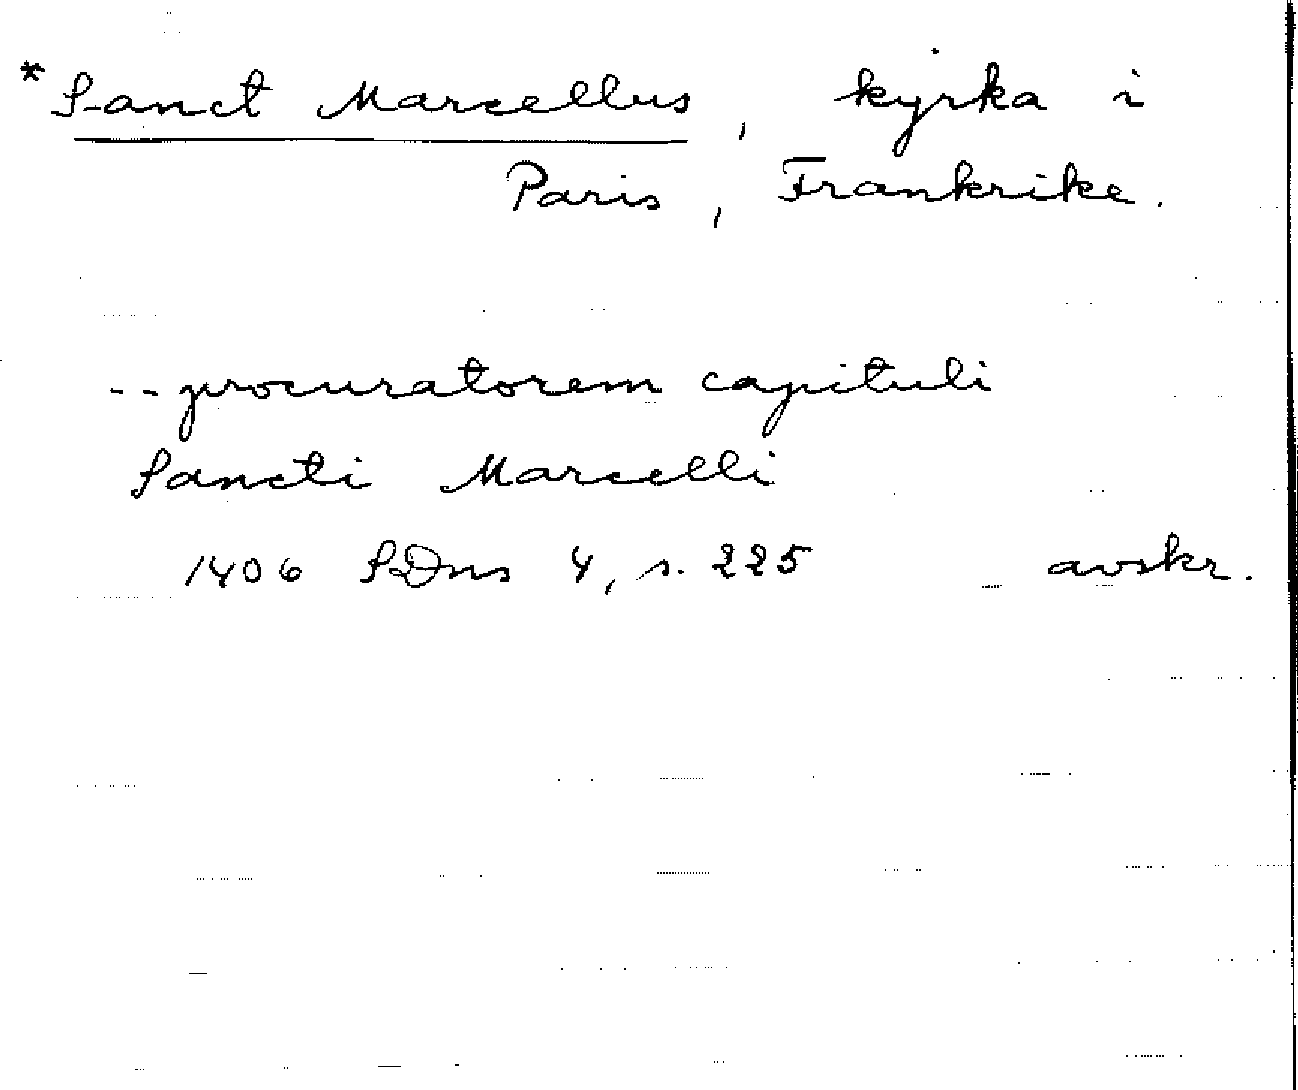 * Sanct Marcellus, kyrka i
Paris, Frankrike.
-- procuratorem capituli
Sancti Marcelli
1406 SDns 4, s. 225 avskr.